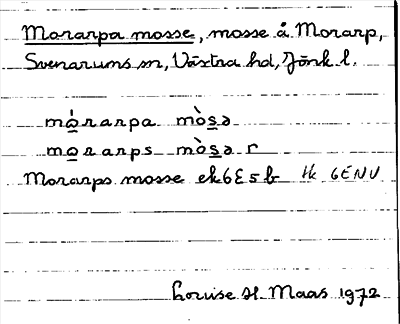 Morarpa mosse, mosse å Morarp,
Svenarums sn, Västra hd, Jönk l.
mo̱̊rarpa mòs̱ə
mo̱rarps mòs̱ə r
Morarps mosse ek6E5b tk 6ENV
Louise H. Maas 1972